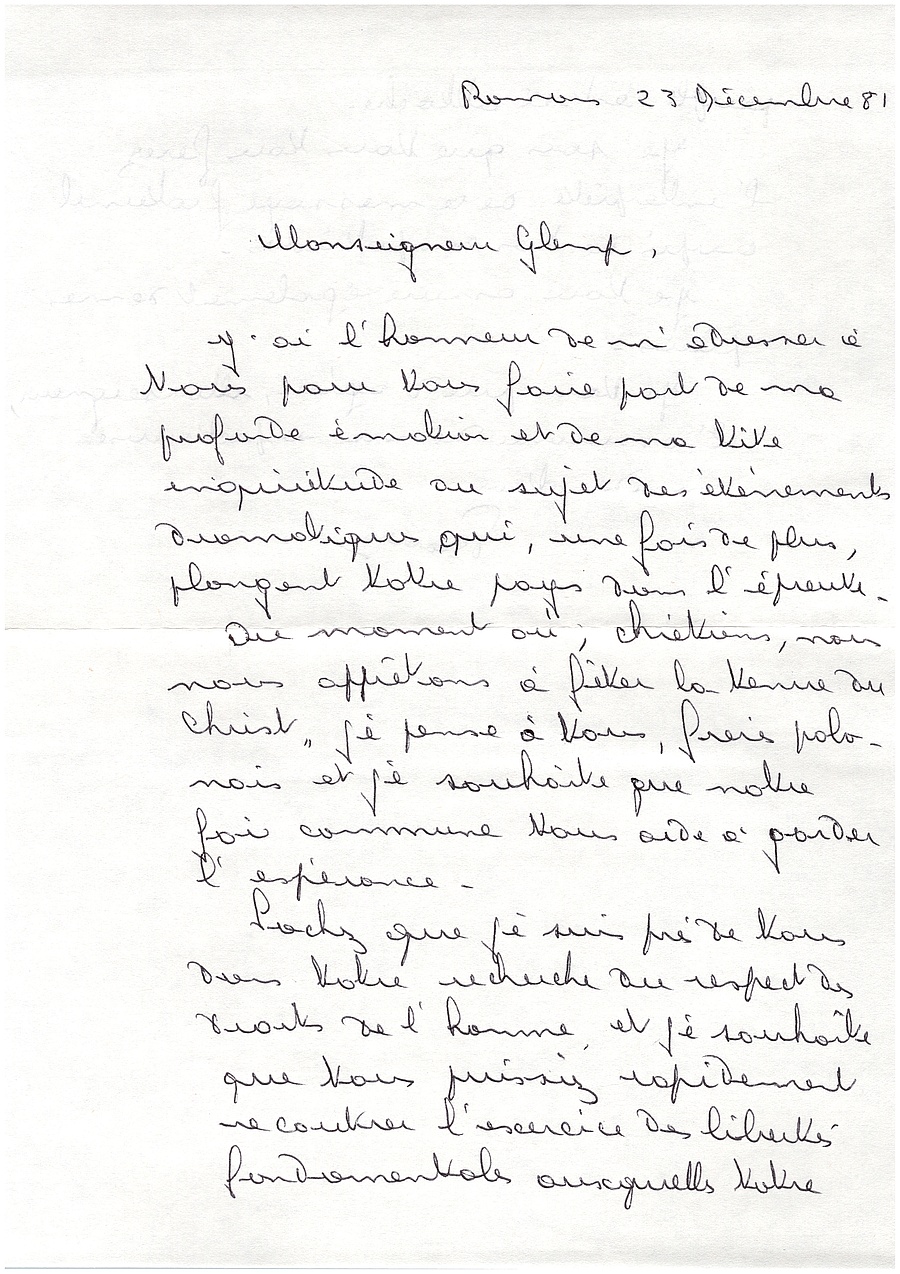 Romans 23 Décembre 81
Monseigneur Glemp,
J'ai l'honneur de m'adresser à
Vous pour Vous faire part de ma
profonde émotion et de ma vive
inquiétude au sujet des événements
dramatiques qui, une fois de plus,
plongent votre pays dans l'épreuve.
Au moment où, chrétiens, nous
nous apprêtons à fêter la venue du
Christ, je pense à Vous, frères polo-
nais et je souhaite que notre
foi commune Vous aide à garder
l'espérance.
Sachez que je suis près de Vous
dans Votre recherche du respect des
droits de l'homme, et je souhaite
que Vous puissiez rapidement
recouvrer l'exercice des libertés
fondamentales auxquelles Votre